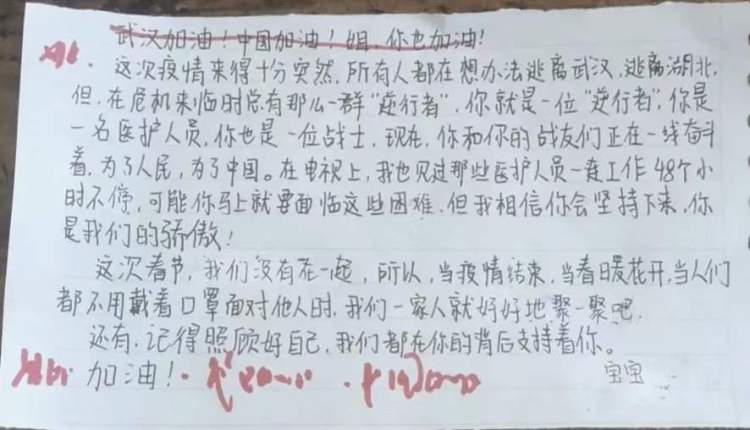 武汉加油！中国加油！姐，你也加油！
这次疫情来得十分突然，所有人都在想办法逃离武汉，逃离湖北，
但，在危机来临时总有那么一群“逆行者”，你就是一位“逆行者”，你是
一名医护人员，你也是一位战士，现在，你和你的战友们正在一线奋斗
着，为了人民，为了中国。在电视上，我也见过那些医护人员一连工作48个小
时不停，可能你马上就要面临这些困难，但我相信你会坚持下来，你
是我们的骄傲！
这次春节，我们没有在一起，所以，当疫情结束，当春日暖花开，当人们
都不用戴着口罩面对他人时，我们一家人就好好地聚一聚吧，
还有，记得照顾好自己，我们都在你的背后支持着你。
加油！
宝宝